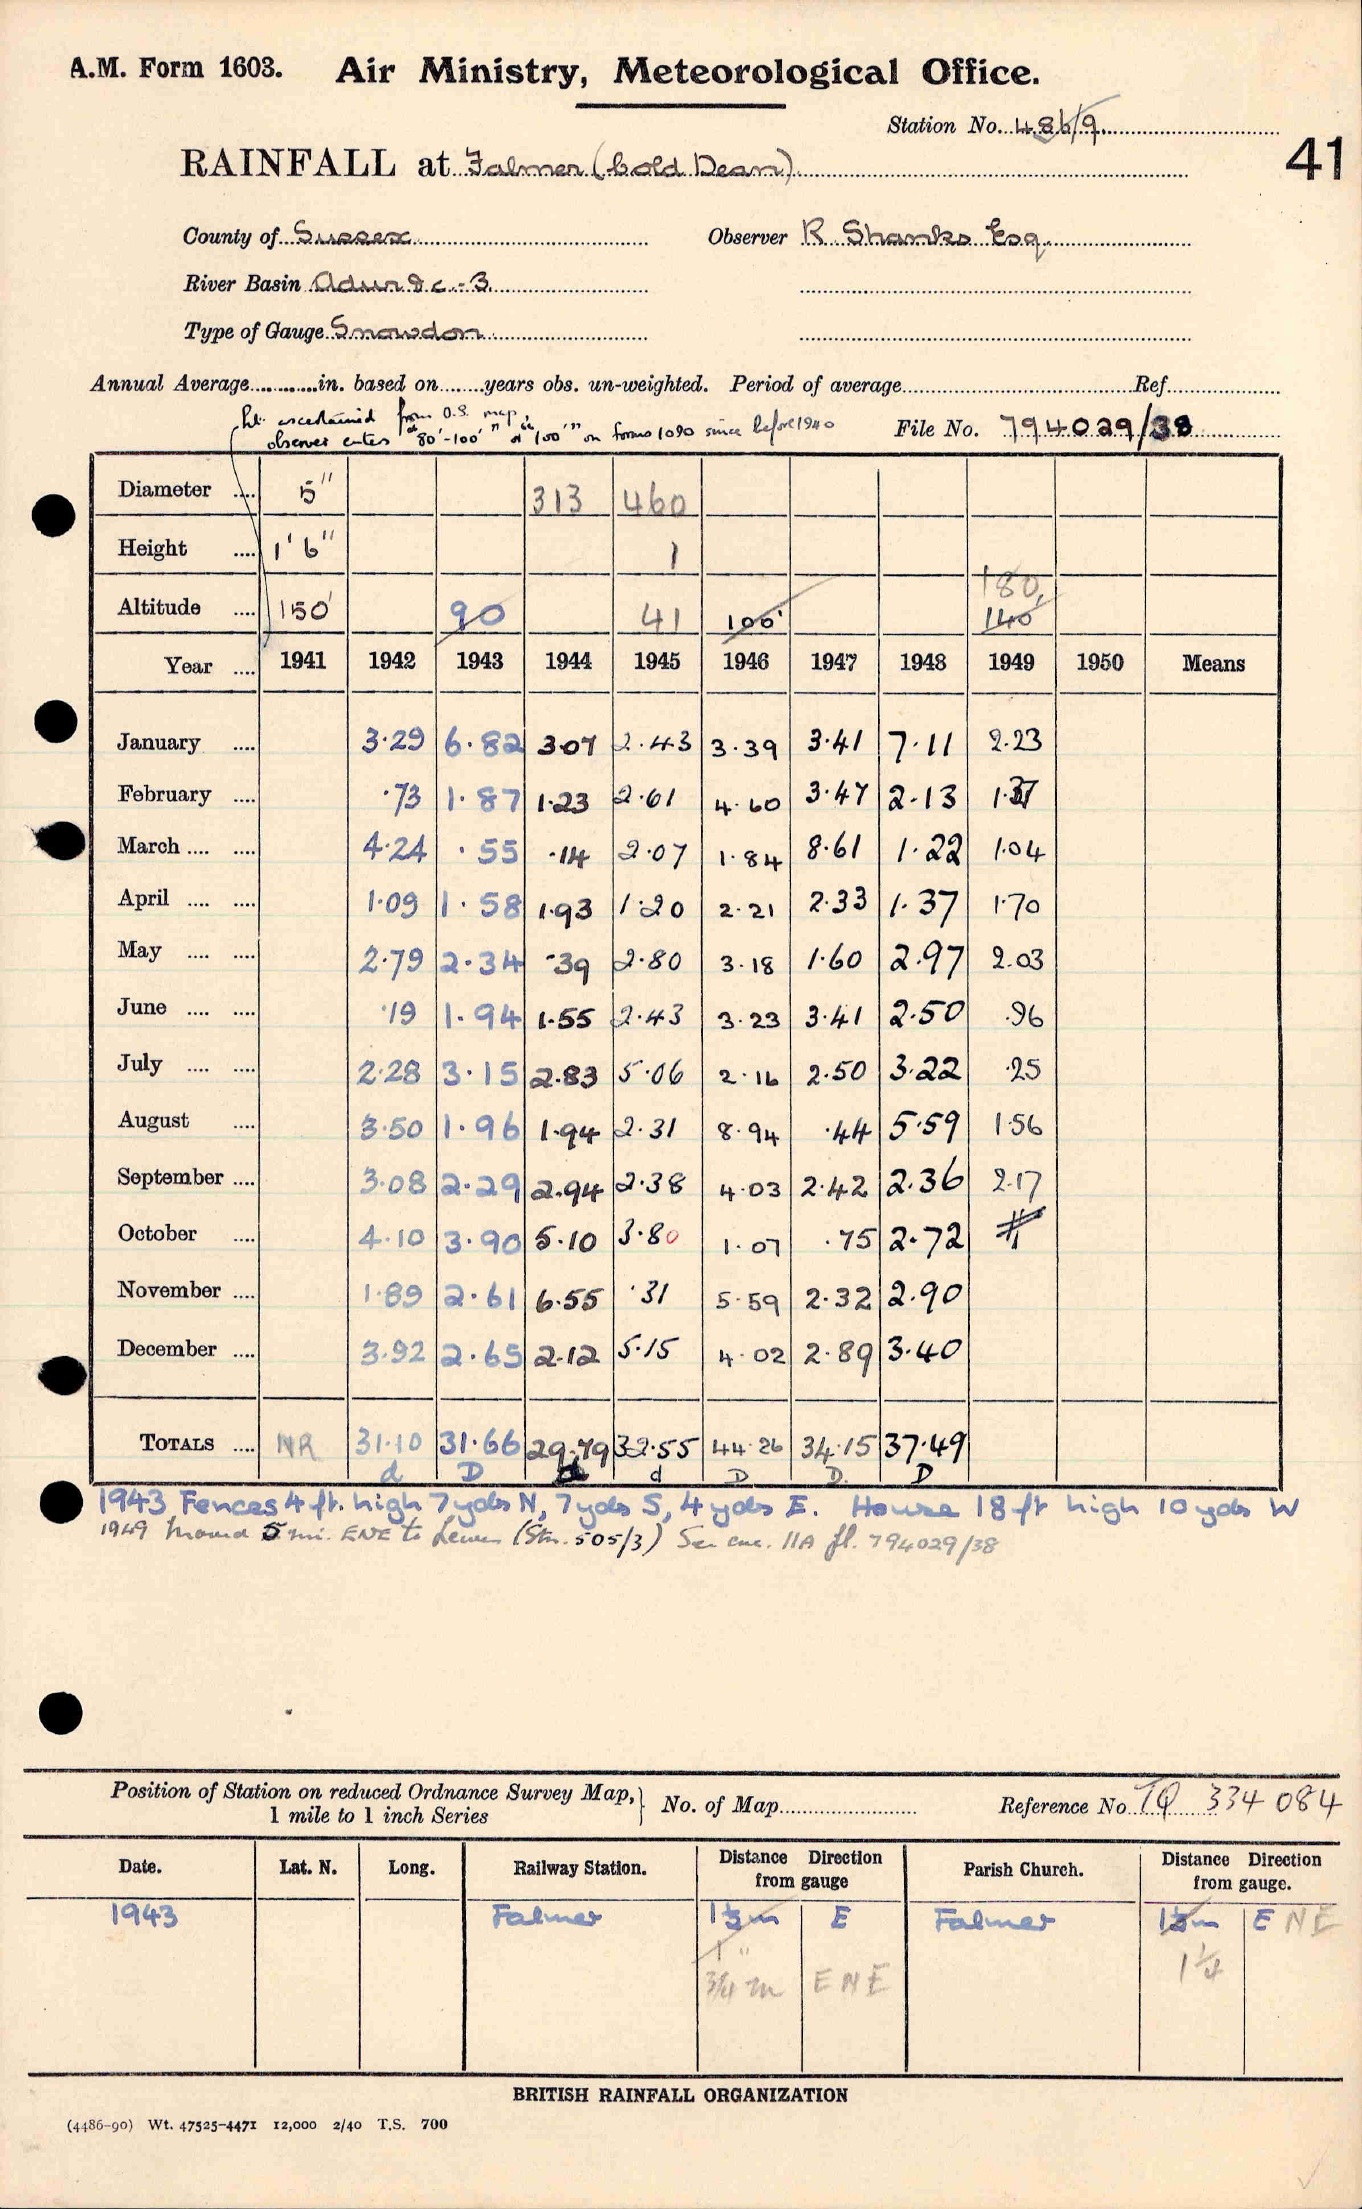 A.M. Form 1603. Air Ministry, Meteorological Office.
Station No. 486/9
41
RAINFALL at Falmer (Cold Dean)
County of Sussex Observer R Shanks Esq
River Basin Adur &c - 3
Type of Gauge Snowdon
Annual Average............in. based on.......years obs. un-weighted. Period of average........Ref........
ht. ascertained from O.S. map,
observer enters "80'-100'" or "100'" on forms 1090 since before 1940 File No. 794029/38
Diameter .... 5" 313 460
Height .... 1' 6" 1
Altitude .... 150' 90 41 100' 180, 140
Year .... 1941 1942 1943 1944 1945 1946 1947 1948 1949 1950 Means
January .... 3.29 6.82 3.07 2.43 3.39 3.41 7.11 2.23
February .... .73 1.87 1.23 2.61 4.60 3.47 2.13 1.37
March .... .... 4.24 .55 .14 2.07 1.84 8.61 1.22 1.04
April .... .... 1.09 1.58 1.93 1.20 2.21 2.33 1.37 1.70
May .... .... 2.79 2.34 .39 2.80 3.18 1.60 2.97 2.03
June .... .... .19 1.94 1.55 2.43 3.23 3.41 2.50 .96
July .... .... 2.28 3.15 2.83 5.06 2.16 2.50 3.22 .25
August .... 3.50 1.96 1.94 2.31 8.94 .44 5.59 1.56
September .... 3.08 2.29 2.94 2.38 4.03 2.42 2.36 2.17
October .... 4.10 3.90 5.10 3.80 1.07 .75 2.72
November .... 1.89 2.61 6.55 .31 5.59 2.32 2.90
December .... 3.92 2.65 2.12 5.15 4.02 2.89 3.40
TOTALS .... NR 31.10 31.66 29.79 32.55 44.26 34.15 37.49
d D d d D D D
1943 Fences 4 ft. high 7 yds N, 7 yds S, 4 yds E. House 18 ft high 10 yds W
1949 Moved 5 mi. ENE to Lewes (Stn. 505/3) See enc. 11A fl. 794029/38
Position of Station on reduced Ordnance Survey Map,
1 mile to 1 inch Series } No. of Map........ Reference No TQ 334 084
Date. Lat. N. Long. Railway Station. Distance Direction from gauge Parish Church. Distance Direction from gauge.
1943 Falmer 1½m E Falmer 1½m E NE
1 "
¾ m ENE 1¼
BRITISH RAINFALL ORGANIZATION
(4486-90) Wt. 47525-4471 12,000 2/40 T.S. 700